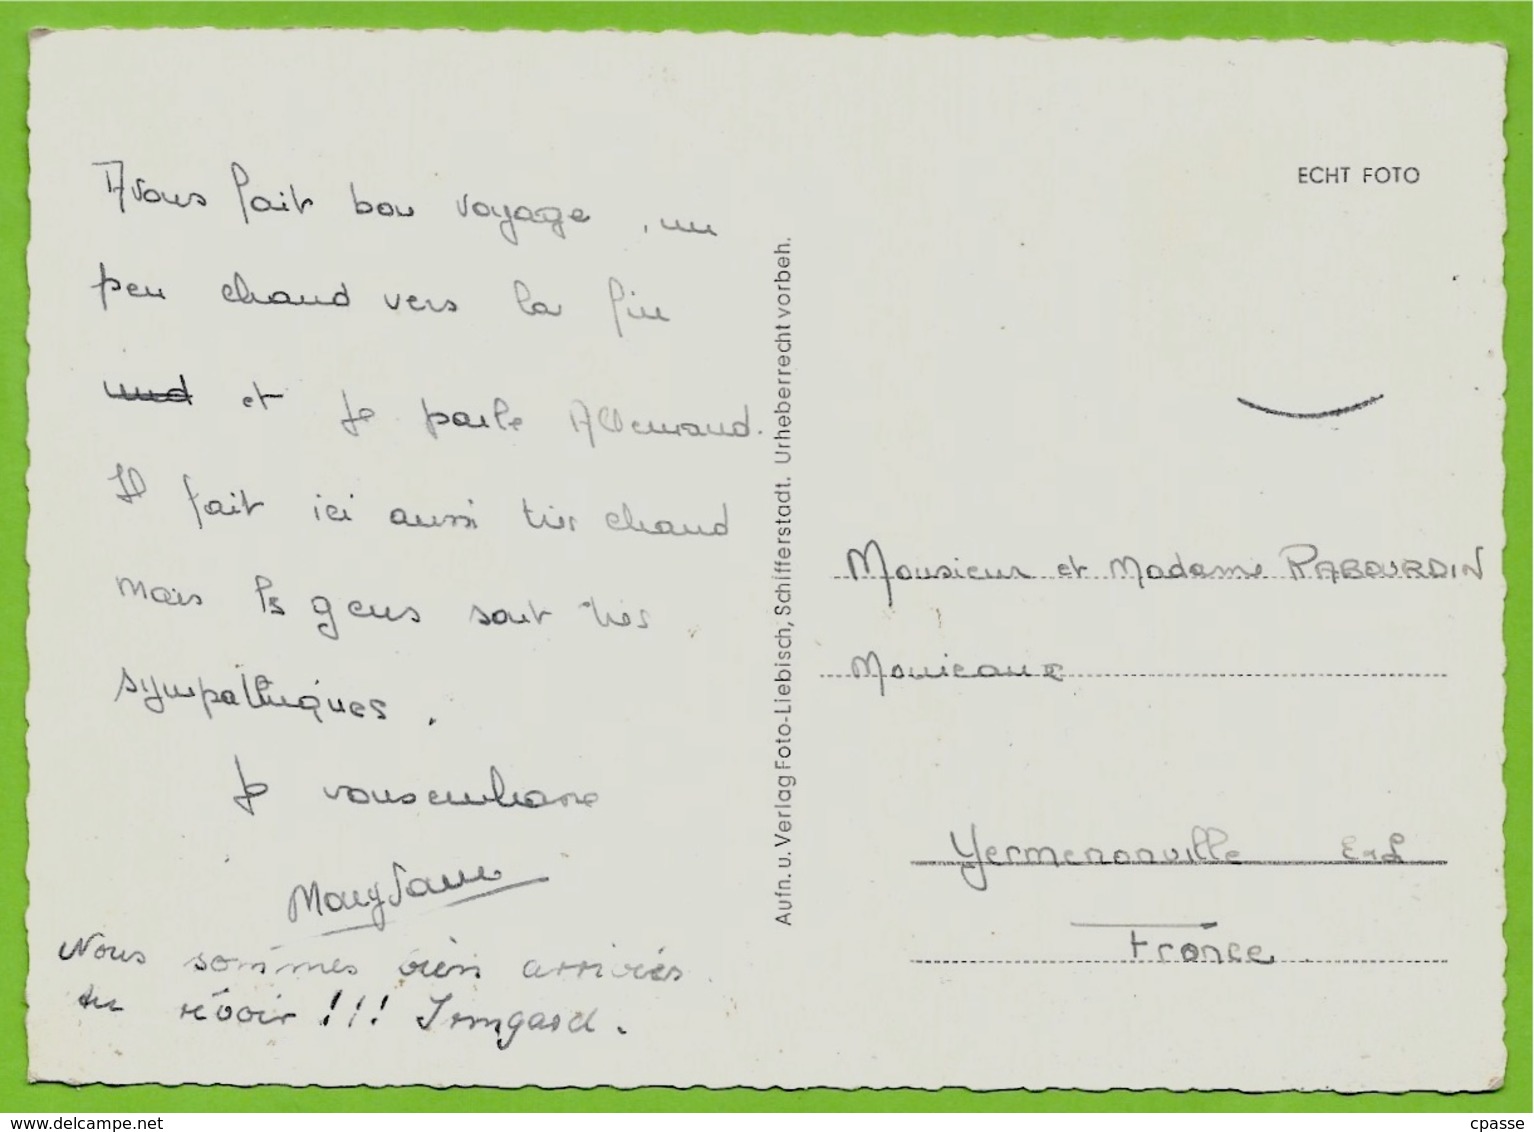 Avons fait bon voyage, un
peu chaud vers la fin
und et je parle Allemand.
Il fait ici aussi très chaud
mais les gens sont très
sympathiques.
Je vous embrasse
Nous sommes bien arrivés
au révoir !!! Irmgard.
Aufn. u. Verlag Foto-Liebisch, Schifferstadt. Urheberrecht vorbeh.
ECHT FOTO
Monsieur et Madame RABOURDIN
Monicaux
Yermenonville E&L
France
www.delcampe.net
cpasse